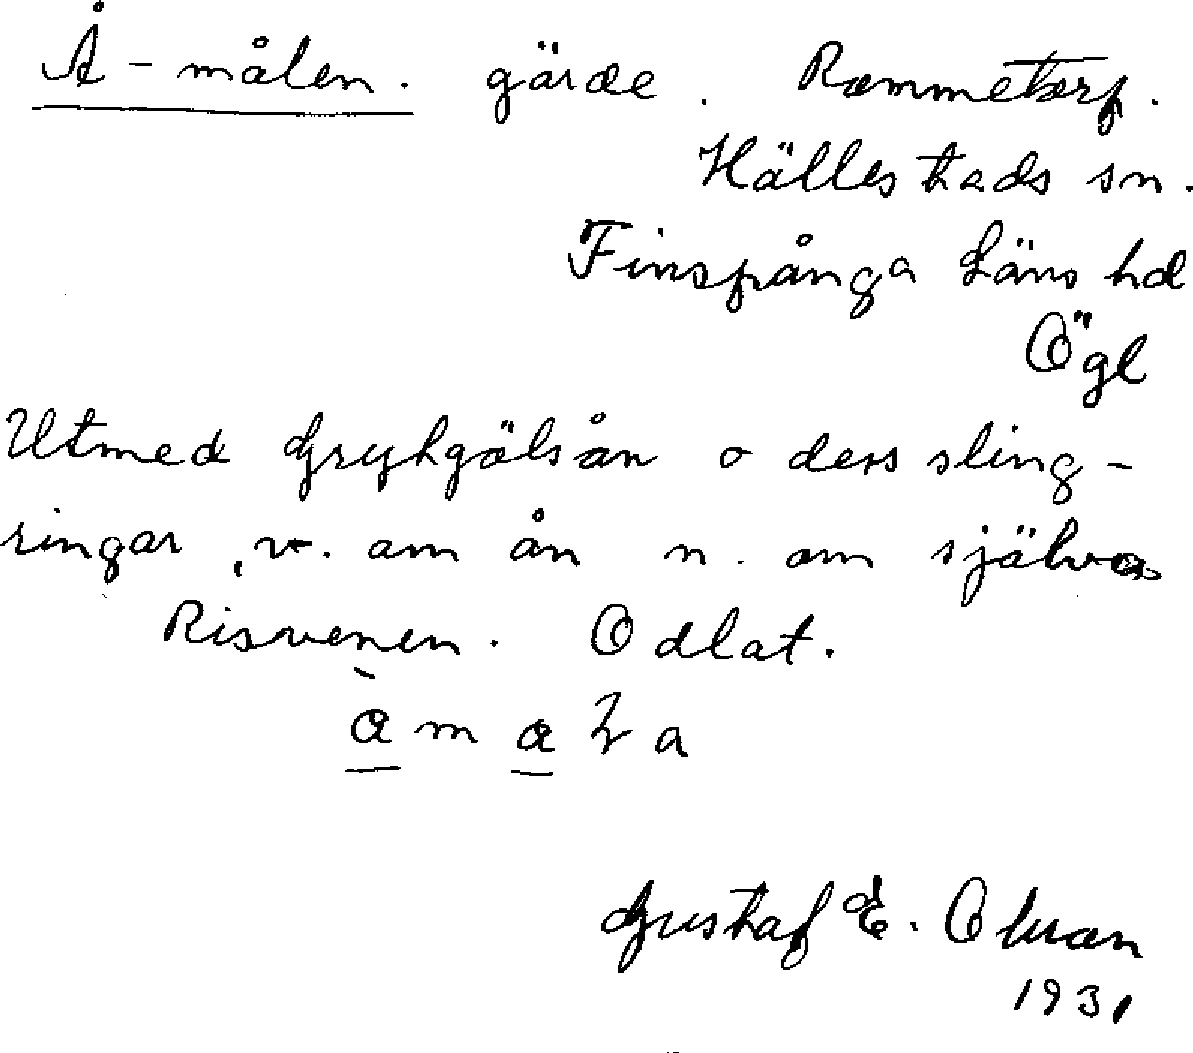 Å-målen. gärde. Rommetorp.
Hällestads sn.
Finspånga Läns hd
Ögl
Utmed Grytgölsån o dess sling-
ringar, v. om ån n. om själva
Risvenen. Odlat.
Gustaf E. Olsson
1931